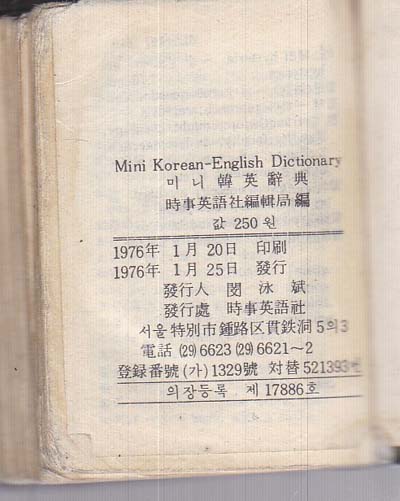 Mini Korean-English Dictionary
미니 韓英辭典
時事英語社編輯局 編
값 250 원
1976年 1月 20日 印刷
1976年 1月 25日 發行
發行人 閔泳斌
發行處 時事英語社
서울 特別市 鍾路区 貫鉄洞 5의3
電話 (29) 6623 (29) 6621~2
登録番號 (가) 1329號 対替 521393
의장등록 제 17886호